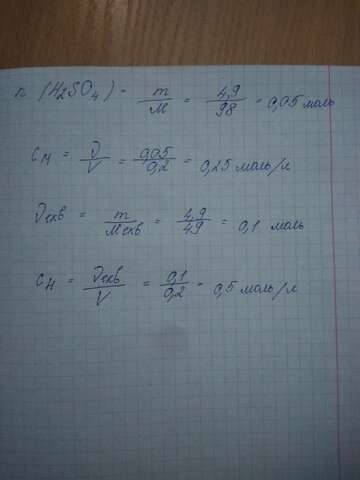 n (H2SO4) - m/M = 4,9/98 = 0,05 моль
CM = ν/V = 0,05/0,2 = 0,25 моль/л
νэкв = m/Mэкв = 4,9/49 = 0,1 моль
CH = νэкв/V = 0,1/0,2 = 0,5 моль/л